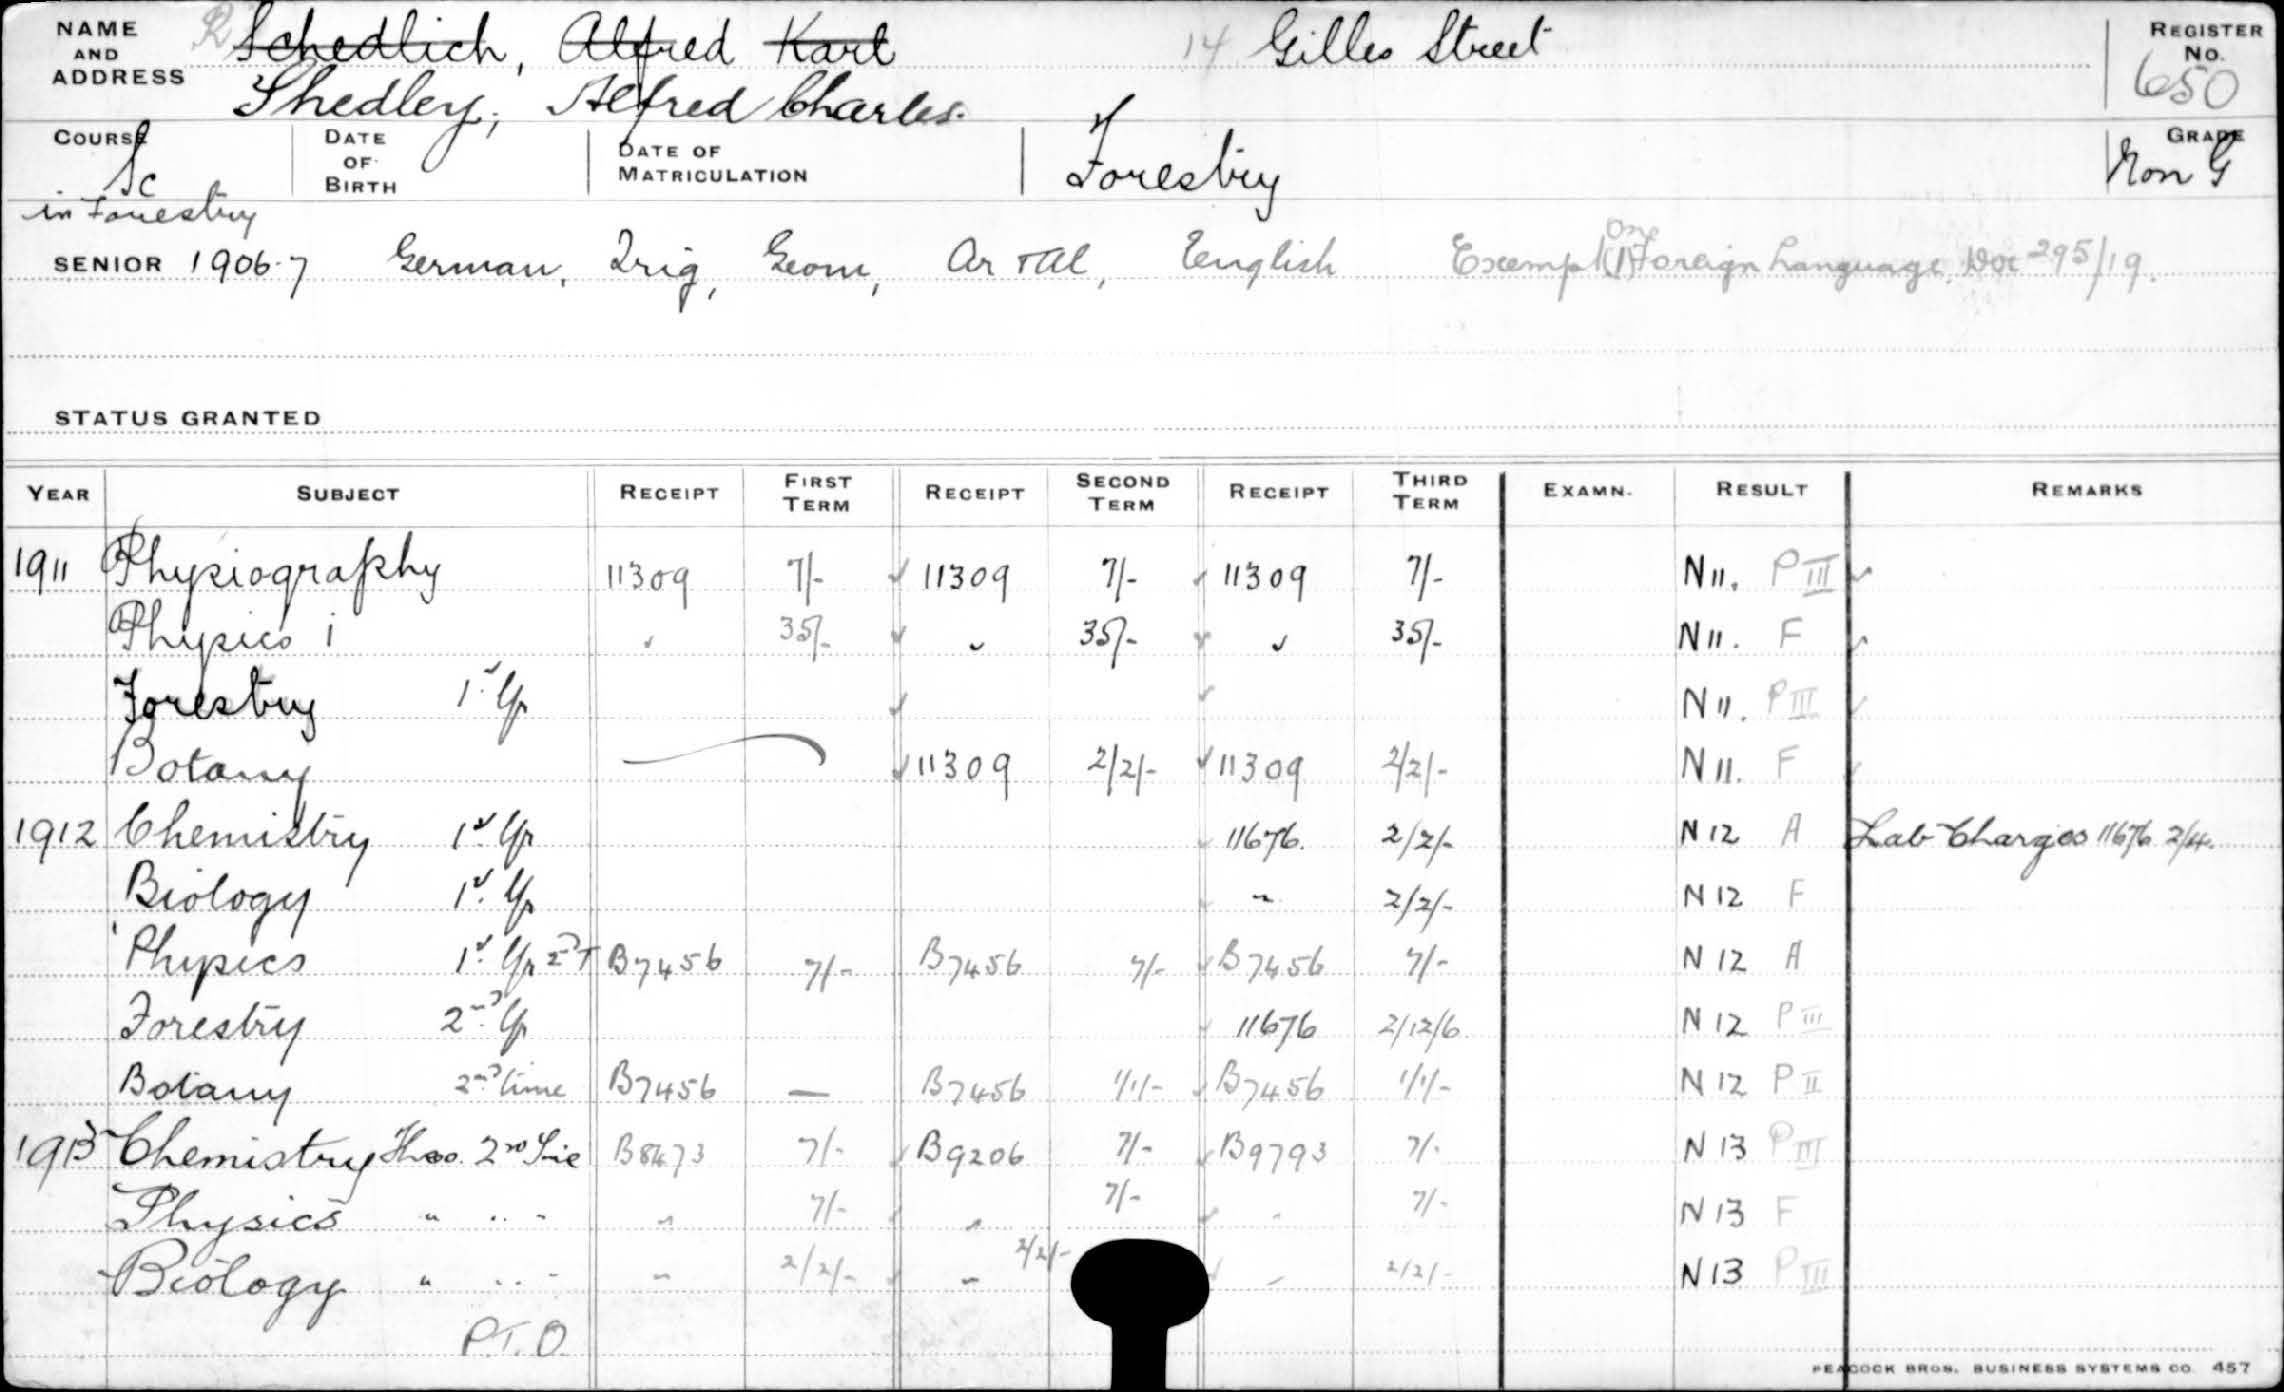 NAME AND ADDRESS Schedlich, Alfred Karl 14 Gilles Street REGISTER No. 650
Shedley, Alfred Charles.
COURSE Sc in Forestry DATE OF BIRTH DATE OF MATRICULATION Forestry GRADE Non G
SENIOR 1906-7 German, Trig, Geom, Ar + Al, English Exempt (1) One Foreign Language. Doc 295/19.
STATUS GRANTED
YEAR SUBJECT RECEIPT FIRST TERM RECEIPT SECOND TERM RECEIPT THIRD TERM EXAMN. RESULT REMARKS
1911 Physiography 11309 7/- ✓ 11309 7/- ✓ 11309 7/- N 11. P III ✓
Physics i ✓ 35/- ✓ ✓ 35/- ✓ ✓ 35/- N 11. F ✓
Forestry 1st Yr ✓ ✓ N 11. P III ✓
Botany — ✓ 11309 2/2/- ✓ 11309 2/2/- N 11. F ✓
1912 Chemistry 1st Yr ✓ 11676. 2/2/- N 12 A Lab Charges 11676 2/4.
Biology 1st Yr ✓ " 2/2/- N 12 F
Physics 1st Yr 2nd T B7456 7/- B7456 7/- ✓ B7456 7/- N 12 A
Forestry 2nd Yr ✓ 11676 2/12/6 N 12 P III
Botany 2nd time B7456 — B7456 1/1/- ✓ B7456 1/1/- N 12 P II
1913 Chemistry Theo. 2nd Time B8473 7/- ✓ B9206 7/- ✓ B9793 7/- N 13 P III
Physics " " " " 7/- ✓ " 7/- ✓ " 7/- N 13 F
Biology " " " " 2/2/- ✓ " 2/2/- ✓ " 2/2/- N 13 P III
P.T.O.
PEACOCK BROS. BUSINESS SYSTEMS CO. 457